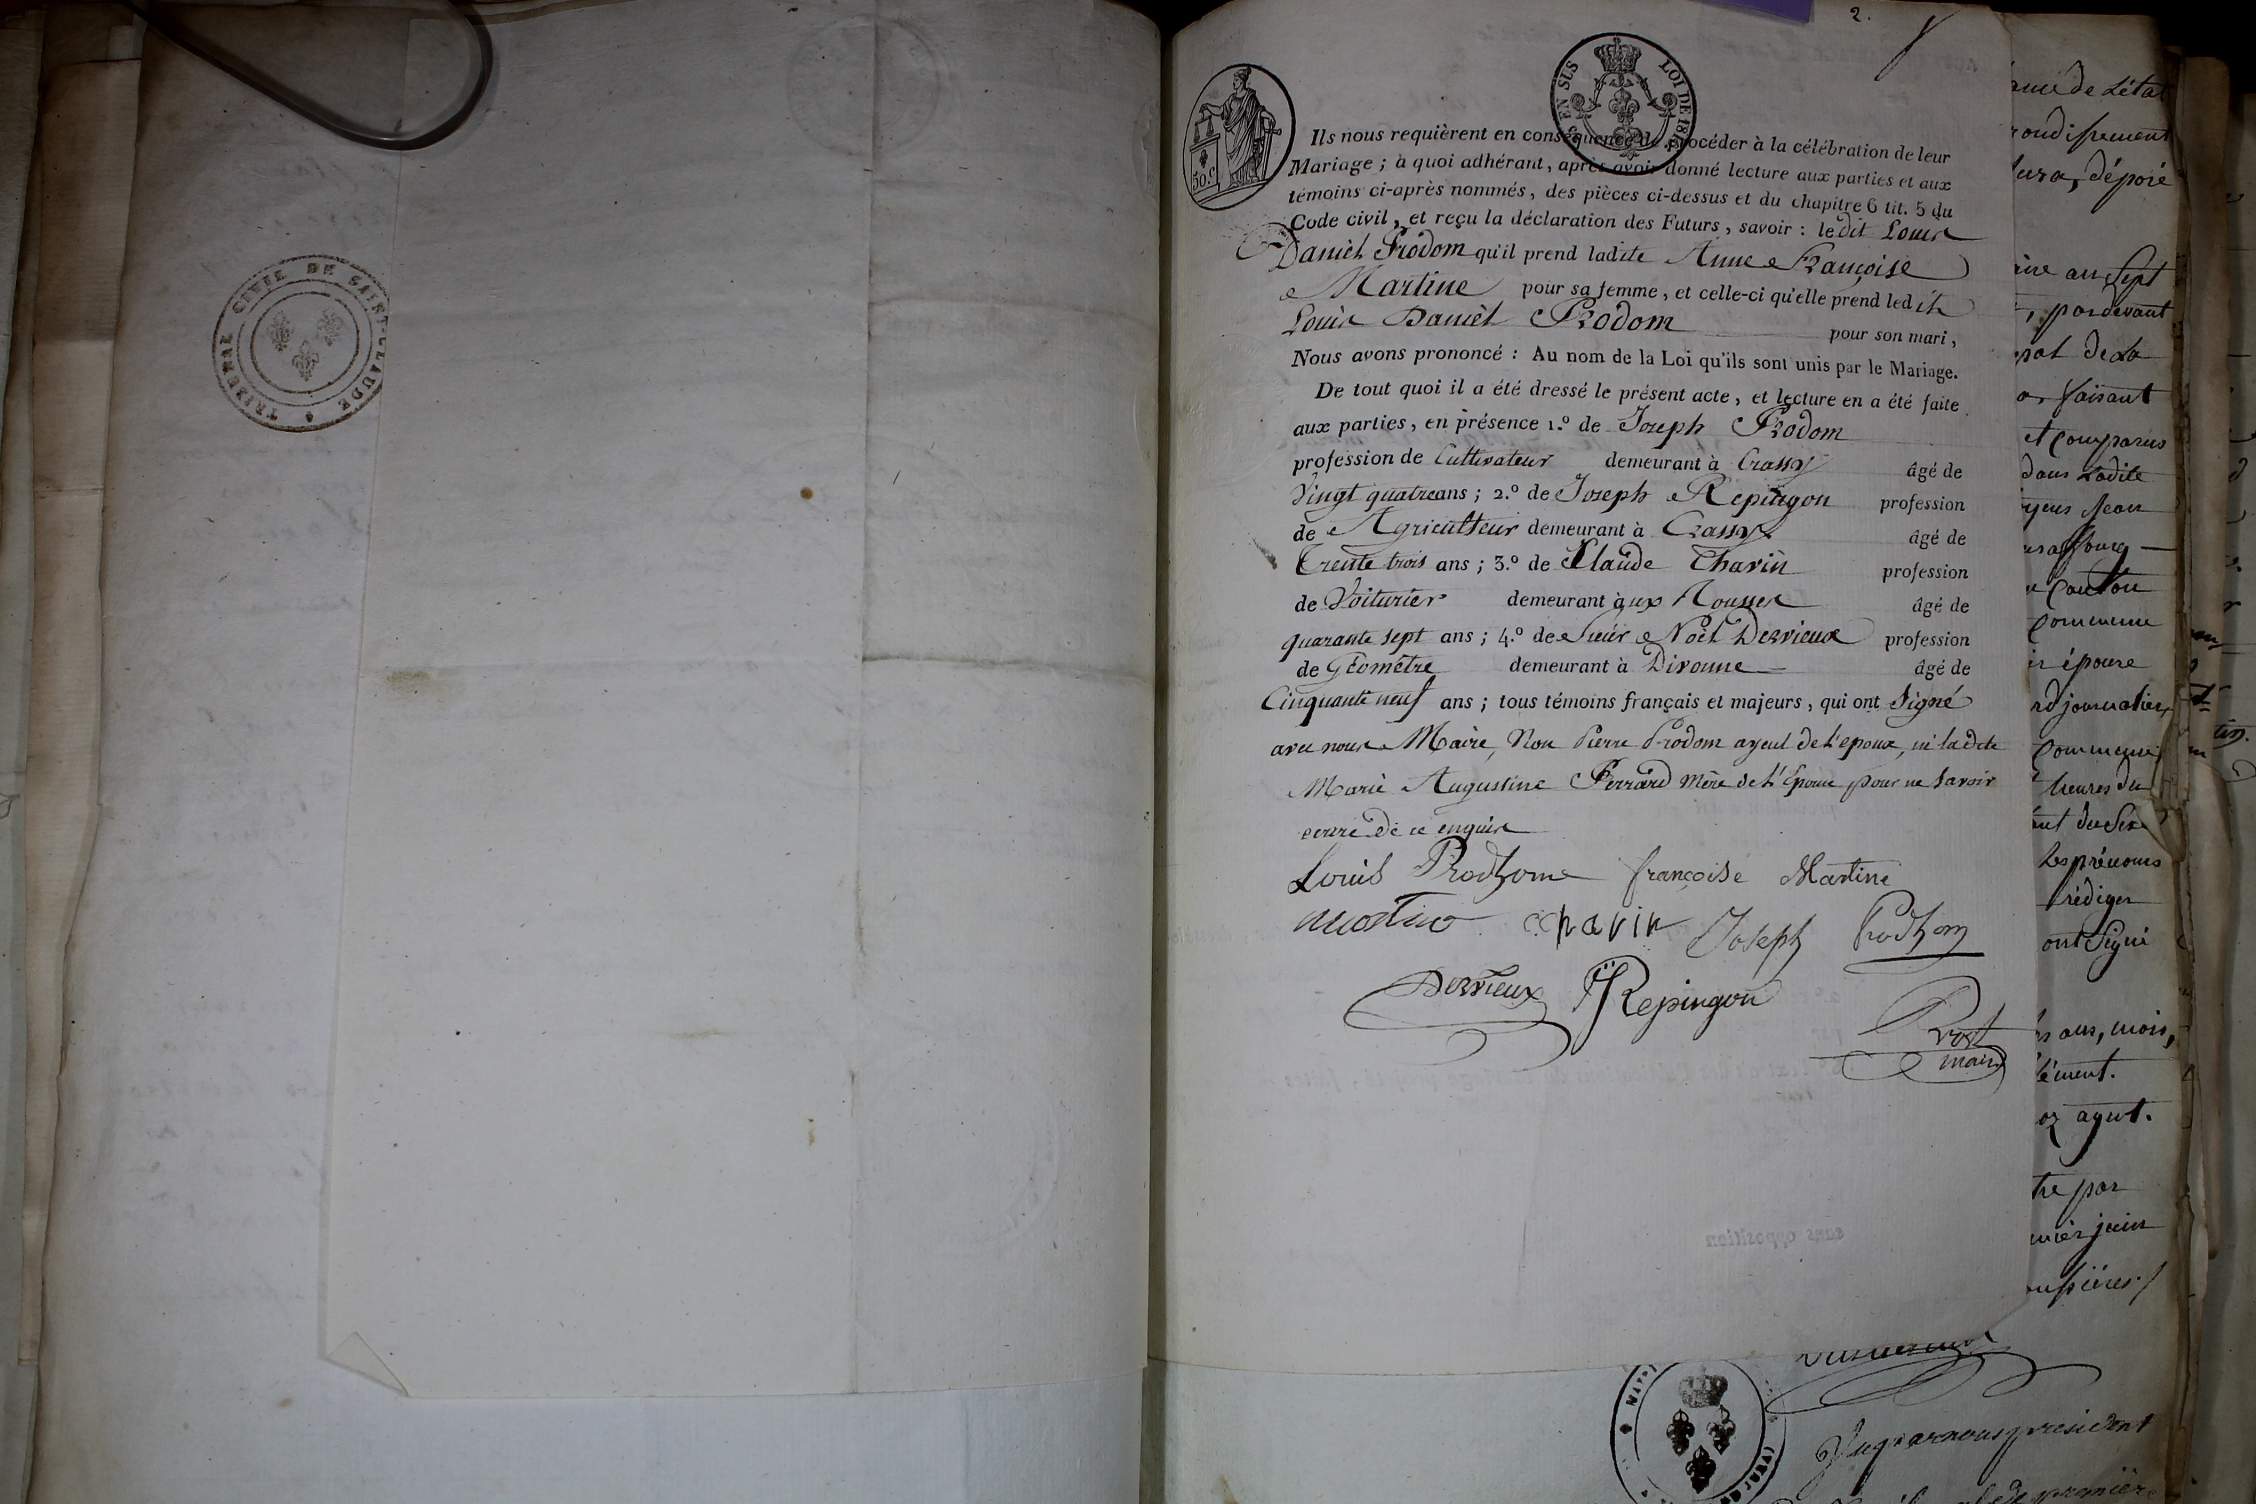 TRIBUNAL CIVIL DE SAINT-CLAUDE
2.
EN SUS LOI DE 181
50.c
Ils nous requièrent en conséquence de procéder à la célébration de leur
Mariage ; à quoi adhérant, après avoir donné lecture aux parties et aux
témoins ci-après nommés, des pièces ci-dessus et du chapitre 6 tit. 5 du
Code civil, et reçu la déclaration des Futurs, savoir : ledit Louis
Daniel Prodom qu'il prend ladite Anne Françoise
Martine pour sa femme, et celle-ci qu'elle prend ledit
Louis Daniel Prodom pour son mari,
Nous avons prononcé : Au nom de la Loi qu'ils sont unis par le Mariage.
De tout quoi il a été dressé le présent acte, et lecture en a été faite
aux parties, en présence 1.º de Joseph Prodom
profession de Cultivateur demeurant à Crassy âgé de
Vingt quatre ans ; 2.º de Joseph Repingon profession
de Agriculteur demeurant à Crassy âgé de
Trente trois ans ; 3.º de Claude Chavin profession
de Voiturier demeurant aux Rousses âgé de
quarante sept ans ; 4.º de Sieur Noël Dervieux profession
de Géomètre demeurant à Divonne âgé de
Cinquante neuf ans ; tous témoins français et majeurs, qui ont Signé
avec nous Maire, Non Pierre Prodom ayeul de l'epoux, ni ladite
Marie Augustine Ferrard mère de l'Epouse pour ne Savoir
ecrire de ce enquis
Louis Prodhome françoise Martine
Martine chavin Joseph Prodhom
Dervieux JJ Repingon
Prost
maire
sans opposition
de L'état
dépose
Sept
pardevant
de La
faisant
et comparus
dans Ladite
Jean
Canton
commune
épouse
journalier
commune
heures du
Les prénoms
rédiger
ont Signé
ans, mois,
par
juin
Vu par nous président